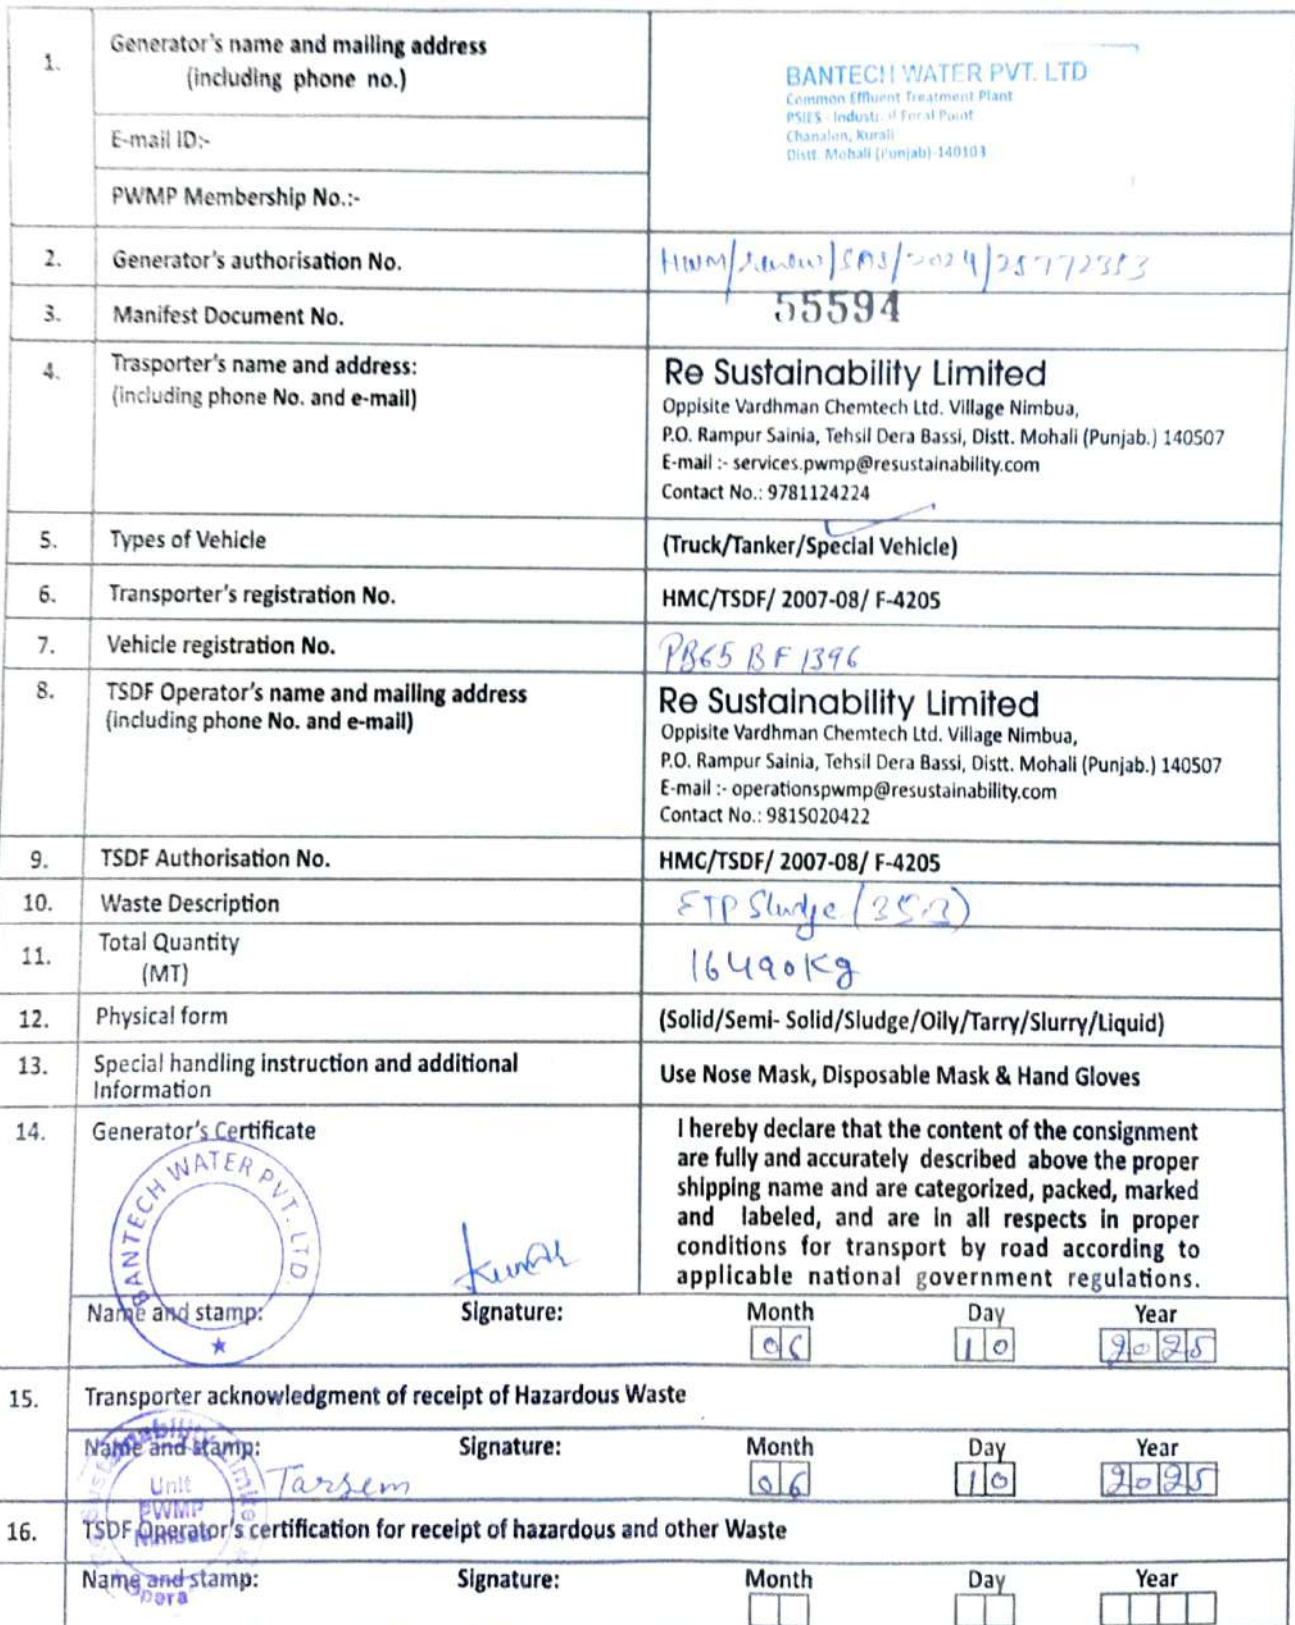 1.
Generator's name and mailing address
(including phone no.)
BANTECH WATER PVT. LTD
Common Effluent Treatment Plant
PSIES - Industrial Focal Point
Chanalon, Kurali
Distt. Mohali (Punjab)-140103
E-mail ID:-
PWMP Membership No.:-
2. Generator's authorisation No. HWM/renew/SAS/2024/25772353
3. Manifest Document No. 55594
4. Trasporter's name and address:
(including phone No. and e-mail)
Re Sustainability Limited
Oppisite Vardhman Chemtech Ltd. Village Nimbua,
P.O. Rampur Sainia, Tehsil Dera Bassi, Distt. Mohali (Punjab.) 140507
E-mail :- services.pwmp@resustainability.com
Contact No.: 9781124224
5. Types of Vehicle (Truck/Tanker/Special Vehicle)
6. Transporter's registration No. HMC/TSDF/ 2007-08/ F-4205
7. Vehicle registration No. PB65 BF 1396
8. TSDF Operator's name and mailing address
(including phone No. and e-mail)
Re Sustainability Limited
Oppisite Vardhman Chemtech Ltd. Village Nimbua,
P.O. Rampur Sainia, Tehsil Dera Bassi, Distt. Mohali (Punjab.) 140507
E-mail :- operationspwmp@resustainability.com
Contact No.: 9815020422
9. TSDF Authorisation No. HMC/TSDF/ 2007-08/ F-4205
10. Waste Description ETP Sludge (35.3)
11. Total Quantity
(MT)
16490Kg
12. Physical form (Solid/Semi- Solid/Sludge/Oily/Tarry/Slurry/Liquid)
13. Special handling instruction and additional
Information
Use Nose Mask, Disposable Mask & Hand Gloves
14. Generator's Certificate
I hereby declare that the content of the consignment
are fully and accurately described above the proper
shipping name and are categorized, packed, marked
and labeled, and are in all respects in proper
conditions for transport by road according to
applicable national government regulations.
BANTECH WATER PVT. LTD.
Kumar
Name and stamp: Signature: Month Day Year
06 10 2025
15. Transporter acknowledgment of receipt of Hazardous Waste
Name and stamp: Signature: Month Day Year
Tarsem 06 10 2025
Unit
PWMP
16. TSDF Operator's certification for receipt of hazardous and other Waste
Name and stamp: Signature: Month Day Year